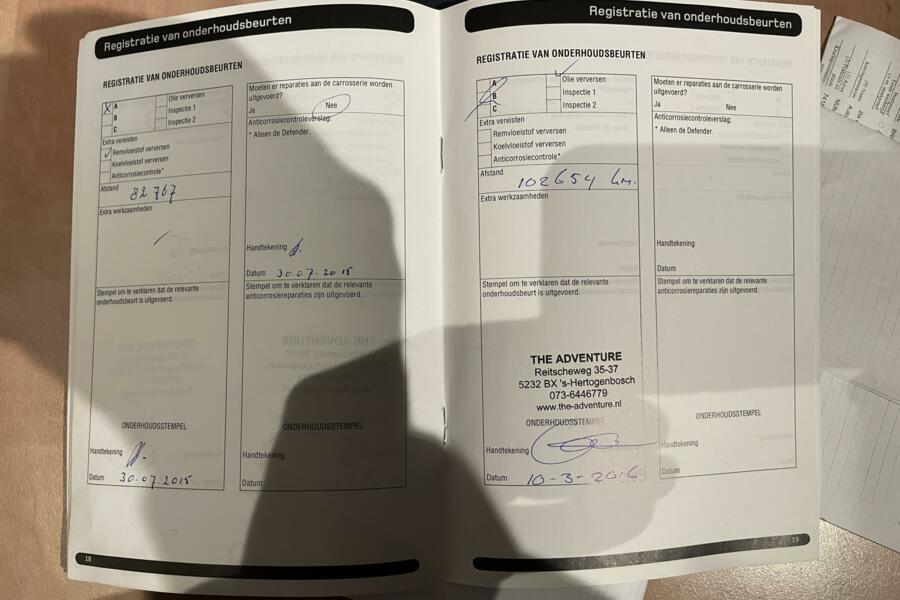 Registratie van onderhoudsbeurten
REGISTRATIE VAN ONDERHOUDSBEURTEN
X A
B
C
Olie verversen
Inspectie 1
Inspectie 2
Extra vereisten
✓ Remvloeistof verversen
Koelvloeistof verversen
Anticorrosiecontrole*
Afstand
82 767
Extra werkzaamheden
Stempel om te verklaren dat de relevante
onderhoudsbeurt is uitgevoerd.
ONDERHOUDSSTEMPEL
Handtekening
Datum 30.07.2015
Moeten er reparaties aan de carrosserie worden
uitgevoerd?
Ja Nee
Anticorrosiecontroleverslag:
* Alleen de Defender.
Handtekening
Datum 30.07.2015
Stempel om te verklaren dat de relevante
anticorrosiereparaties zijn uitgevoerd.
ONDERHOUDSSTEMPEL
Handtekening
Datum
18
Registratie van onderhoudsbeurten
REGISTRATIE VAN ONDERHOUDSBEURTEN
A
B
C
✓
Olie verversen
Inspectie 1
Inspectie 2
Extra vereisten
Remvloeistof verversen
Koelvloeistof verversen
Anticorrosiecontrole*
Afstand
102654 km.
Extra werkzaamheden
Stempel om te verklaren dat de relevante
onderhoudsbeurt is uitgevoerd.
THE ADVENTURE
Reitscheweg 35-37
5232 BX 's-Hertogenbosch
073-6446779
www.the-adventure.nl
ONDERHOUDSSTEMPEL
Handtekening
Datum 10-3-2016
Moeten er reparaties aan de carrosserie worden
uitgevoerd?
Ja Nee
Anticorrosiecontroleverslag:
* Alleen de Defender.
Handtekening
Datum
Stempel om te verklaren dat de relevante
anticorrosiereparaties zijn uitgevoerd.
ONDERHOUDSSTEMPEL
Handtekening
Datum
19